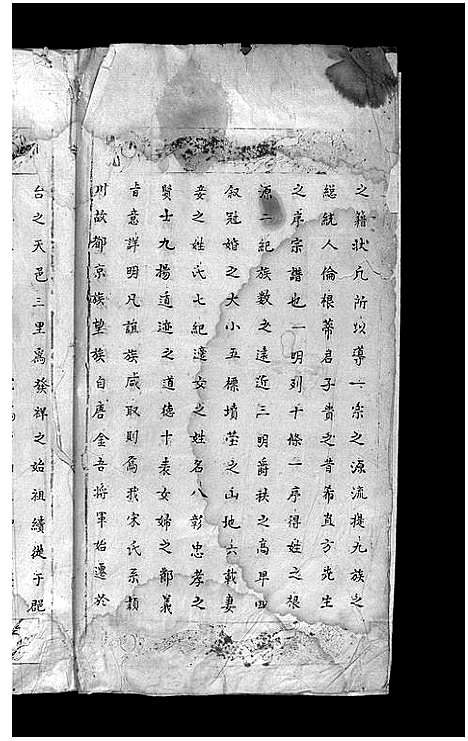 之籍狀凡所以導一宗之源流提九族之
總統人倫根蒂君子貴之昔希直方先生
之序宗譜也一明列十條一序得姓之根
源二紀族数之遠近三明爵秩之高卑四
叙冠婚之大小五標墳茔之山地六載妻
妾之姓氏七紀適女之姓名八彰忠孝之
賢士九揚道迹之道德十表女婦之節義
旨意詳明凡誼族咸取則焉我宋氏系顏
川故都京族望族自唐金吾將軍始遷於
台之天邑三里為發祥之始祖續徙于邑